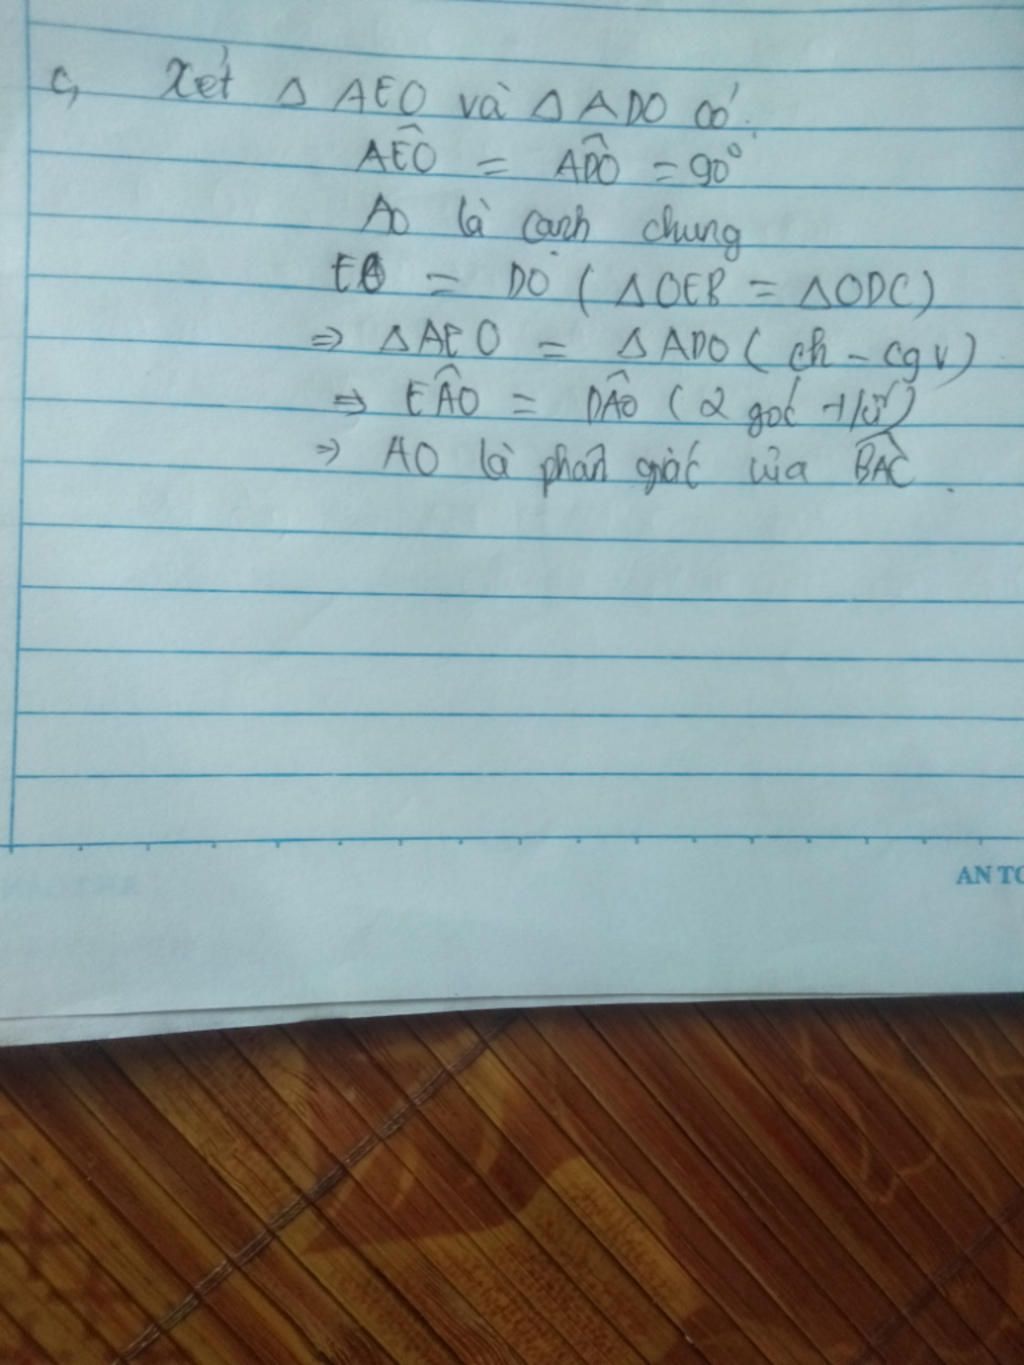 c, Xét Δ AEO và Δ ADO có:
AÊO = AD̂O = 90°
AO là cạnh chung
EO = DO (ΔOEB = ΔODC)
⇒ ΔAEO = ΔADO (ch - cgv)
⇒ EÂO = DÂO (2 góc t/ư)
⇒ AO là phân giác của BÂC.
AN TO